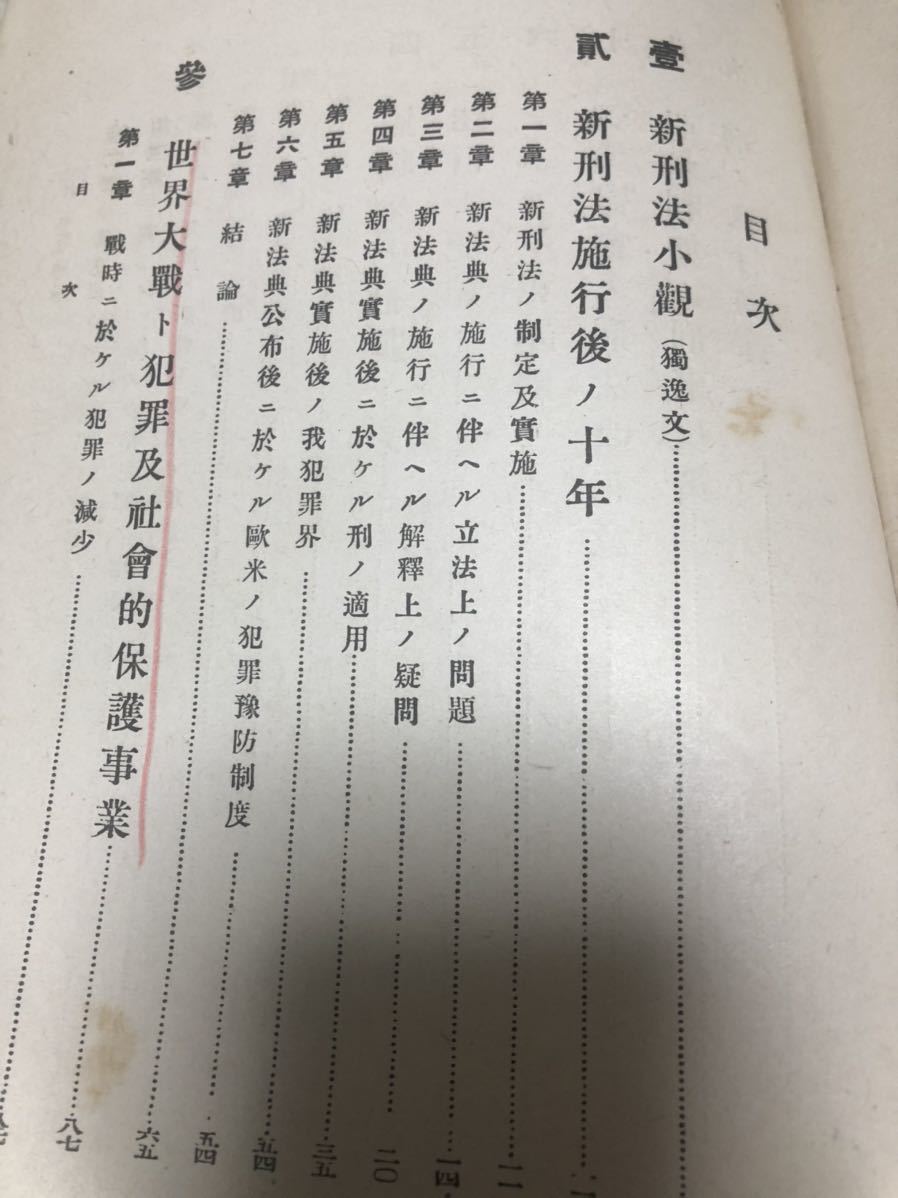 目次
壹 新刑法小觀（獨逸文）…………
貳 新刑法施行後ノ十年…………
第一章 新刑法ノ制定及實施…………一一
第二章 新法典ノ施行ニ伴ヘル立法上ノ問題…………一四
第三章 新法典ノ施行ニ伴ヘル解釋上ノ疑問…………二〇
第四章 新法典實施後ニ於ケル刑ノ適用…………三五
第五章 新法典實施後ノ我犯罪界…………五四
第六章 新法典公布後ニ於ケル歐米ノ犯罪豫防制度…………五四
第七章 結論…………六五
參 世界大戰ト犯罪及社會的保護事業…………八七
第一章 戰時ニ於ケル犯罪ノ減少…………
目次